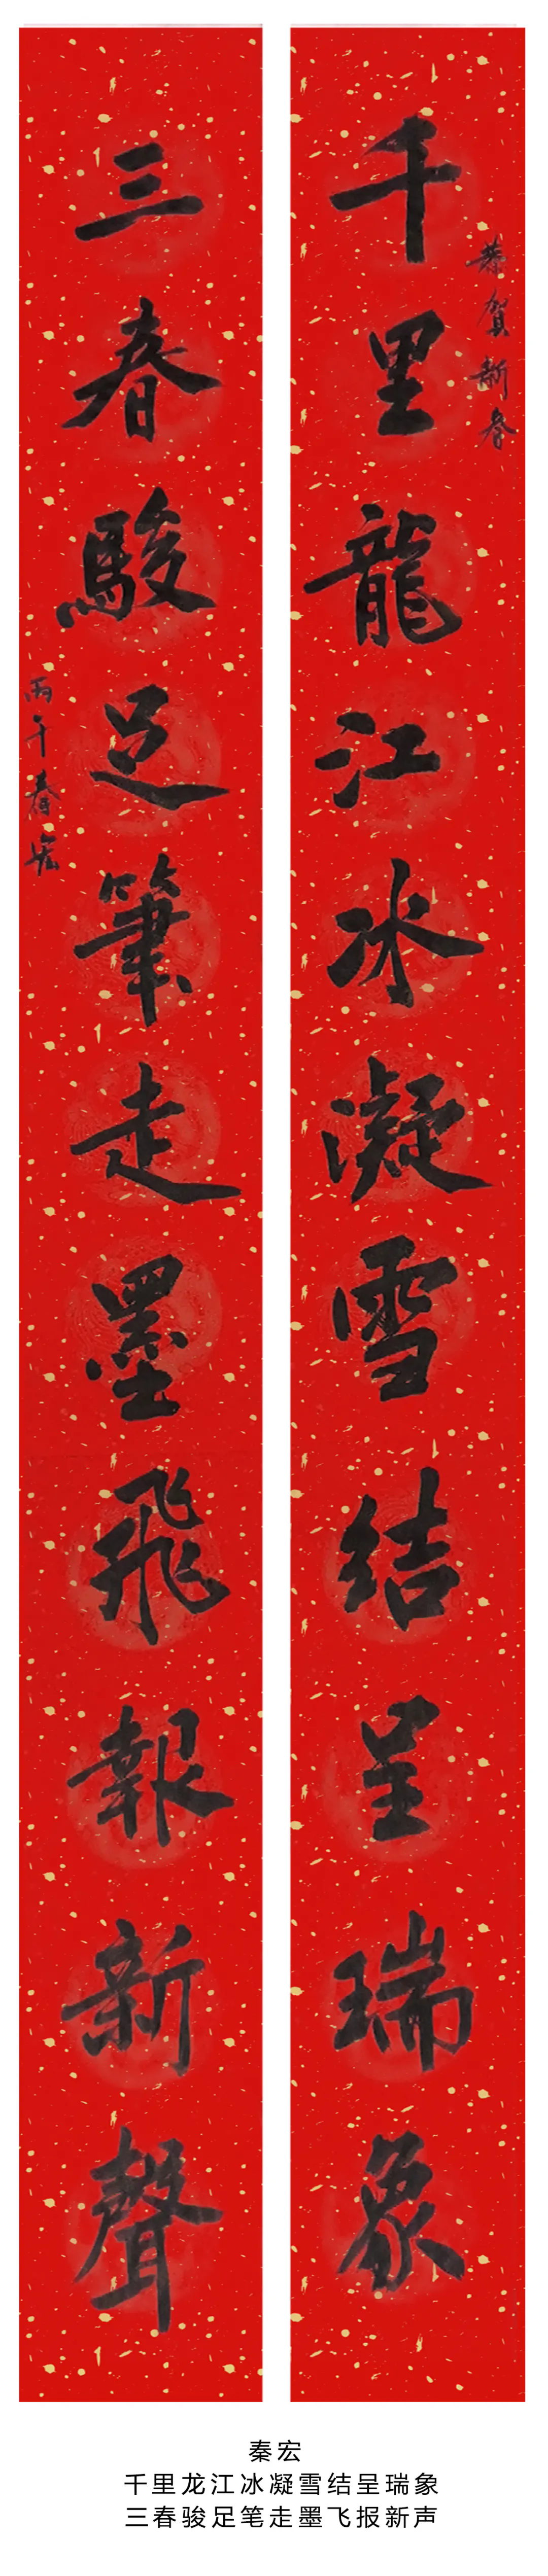 恭贺新春
千里龍江冰凝雪结呈瑞象
三春駿足筆走墨飛報新聲
丙午春宏
秦宏
千里龙江冰凝雪结呈瑞象
三春骏足笔走墨飞报新声